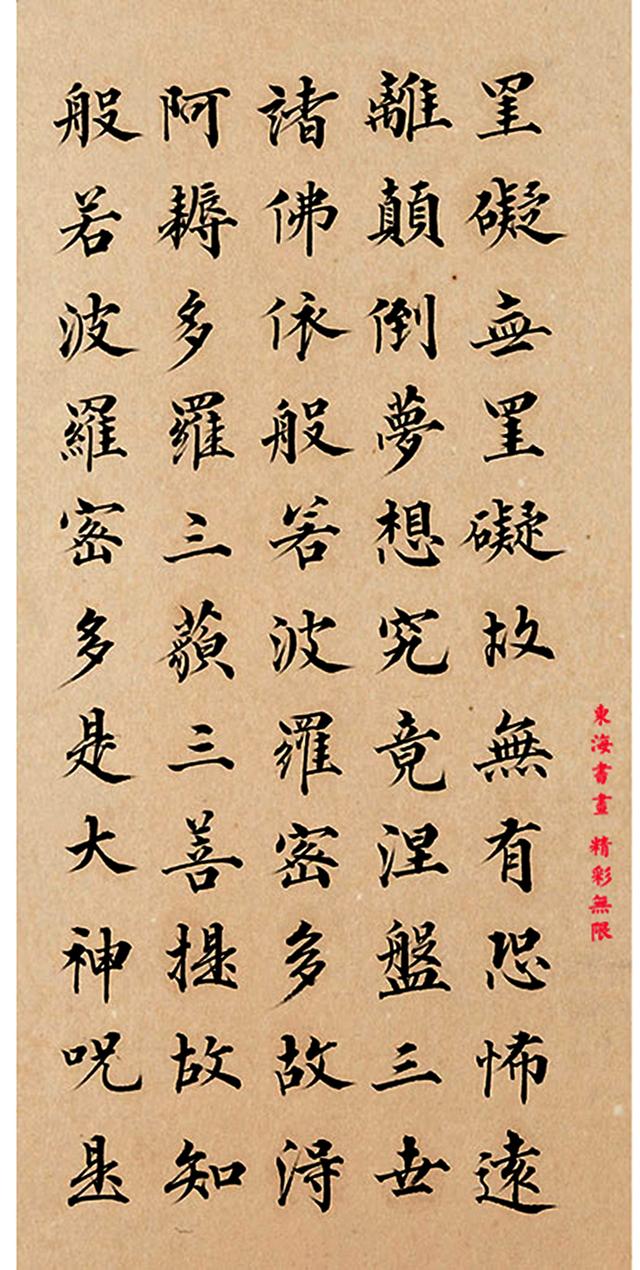 東海書畫 精彩無限
罣礙無罣礙故無有恐怖遠
離顛倒夢想究竟涅盤三世
諸佛依般若波羅密多故得
阿耨多羅三藐三菩提故知
般若波羅密多是大神呪是